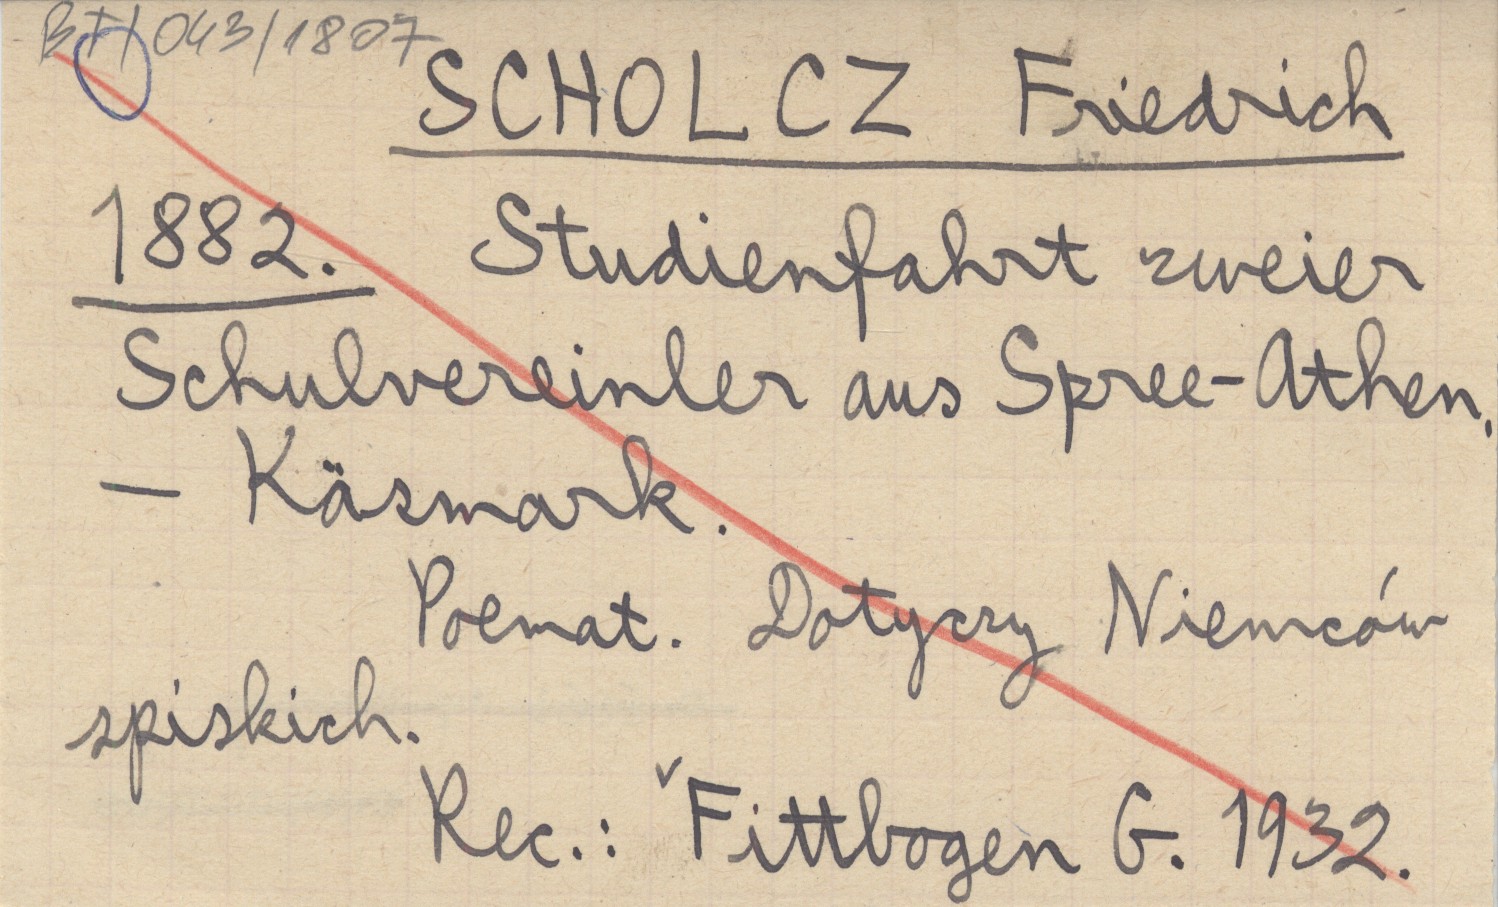 BH/043/1807
SCHOLCZ Friedrich
1882. Studienfahrt zweier
Schulvereinler aus Spree-Athen.
— Käsmark.
Poemat. Dotyczy Niemców
spiskich.
Rec.: Fittbogen G. 1932.